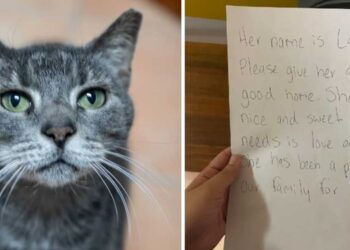 Her name is
Please give her a
good home. She
nice and sweet
needs is love
She has been a
our family for